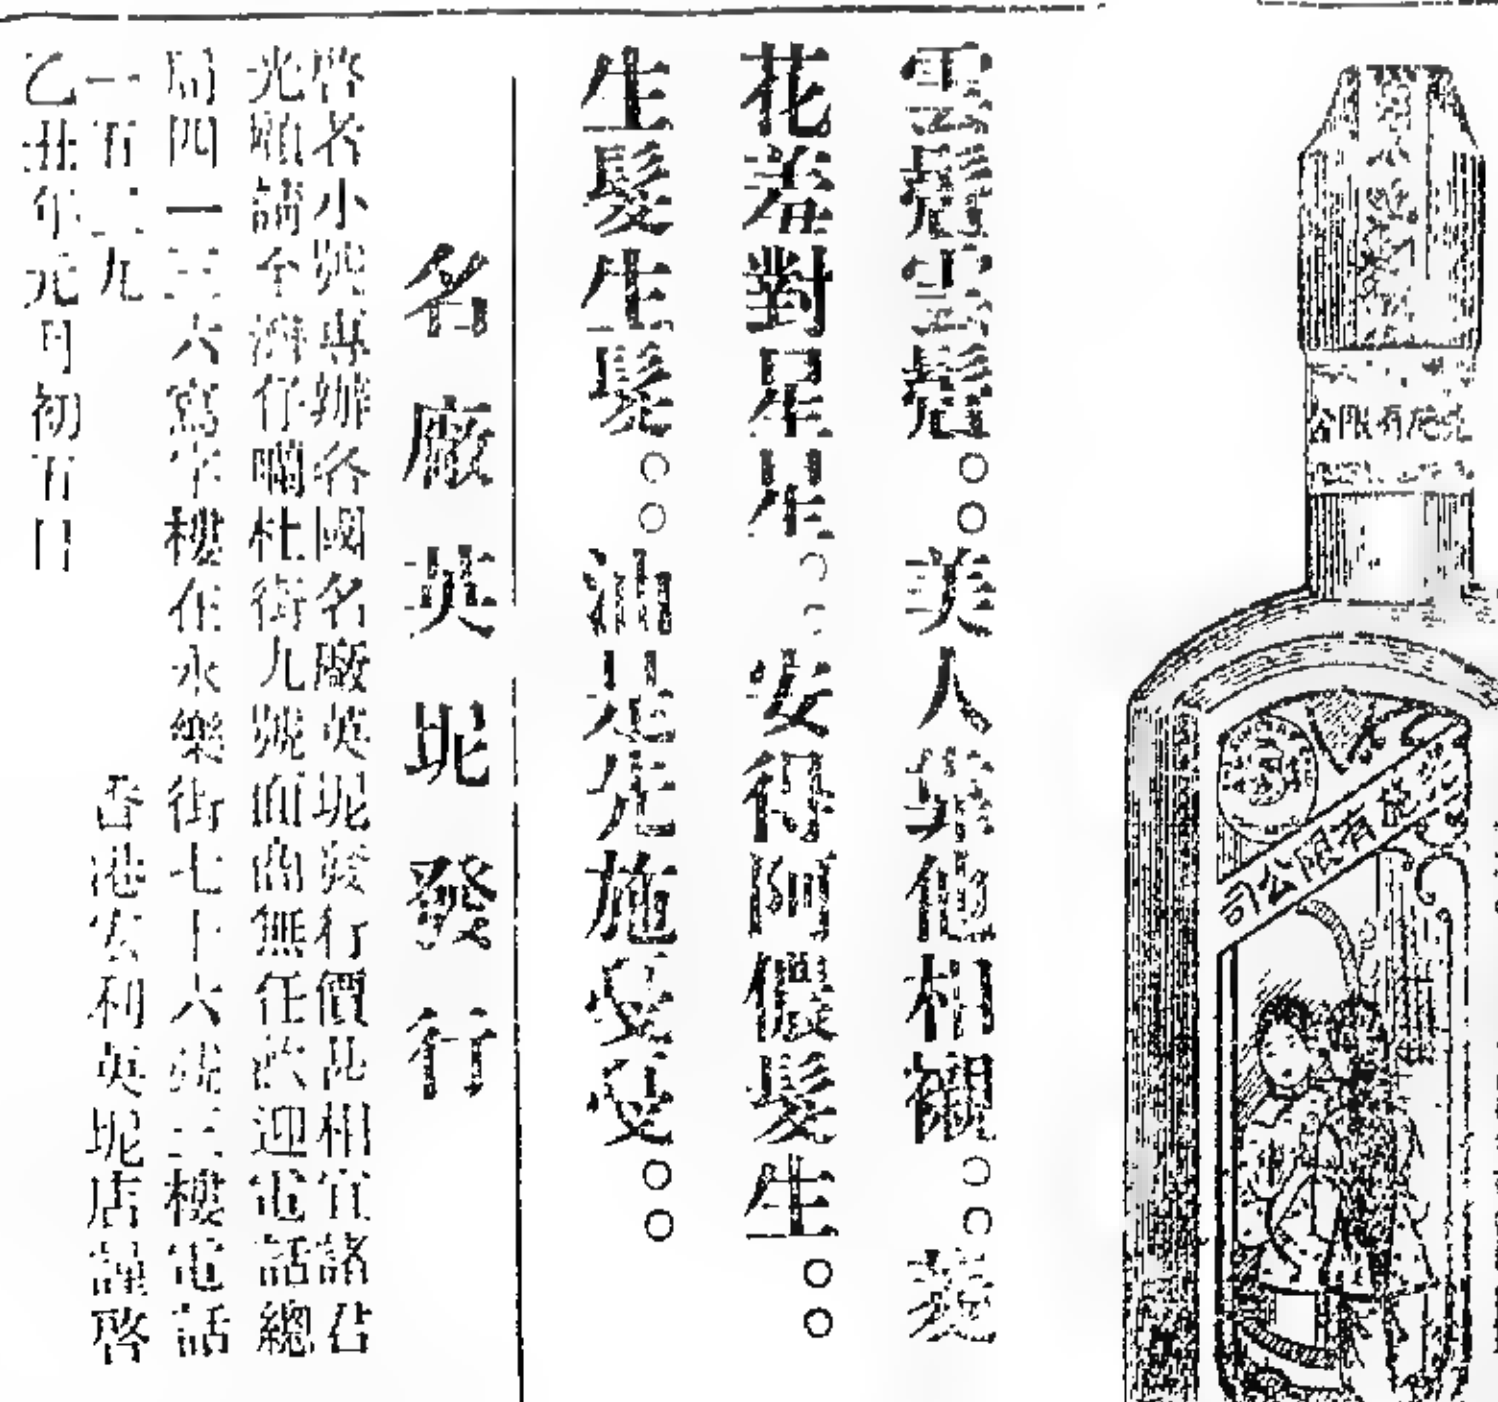 雲鬢雲鬢○○美人第他相襯○○菱
花羞對星星○○安得阿儂髮生○○
生髮生髮○○油是先施受受○○
名廠英坭發行
啓者小號專辦各國名廠英坭發行價品相宜諸君
光顧請至灣仔囒杜街九號面商無任歡迎電話總
局四一三六寫字樓在永樂街七十六號三樓電話
一五二九
香港安利英坭店謹啓
乙丑年元月初五日
施有限公司